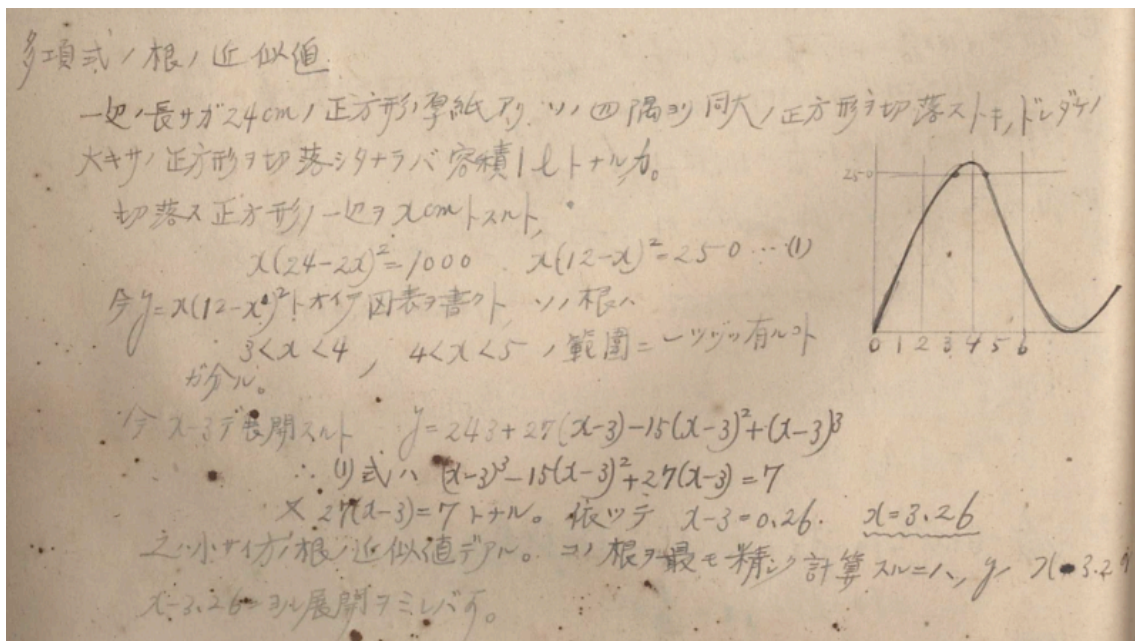 多項式ノ根ノ近似値
一辺ノ長サガ24cmノ正方形ノ厚紙アリ. ソノ四隅ヨリ同大ノ正方形ヲ切落ストキ, ドレダケノ
大キサノ正方形ヲ切落シタナラバ容積1lトナルカ。
切落ス正方形ノ一辺ヲxcmトスルト,
x(24-2x)²=1000 x(12-x)²=250…(1)
今y=x(12-x)²トオイテ図表ヲ書クト, ソノ根ハ
3<x<4, 4<x<5ノ範囲ニ一ツヅツ有ルコト
ガ分ル。
今x-3デ展開スルト y=243+27(x-3)-15(x-3)²+(x-3)³
∴(1)式ハ (x-3)³-15(x-3)²+27(x-3)=7
27(x-3)=7トナル。依ツテ x-3=0.26. x=3.26
之小サイ方ノ根ノ近似値デアル。コノ根ヲ最モ精シク計算スルニハ, y x-3.26
x-3.26ニヨル展開ヲミレバ可。
250
0 1 2 3 4 5 6